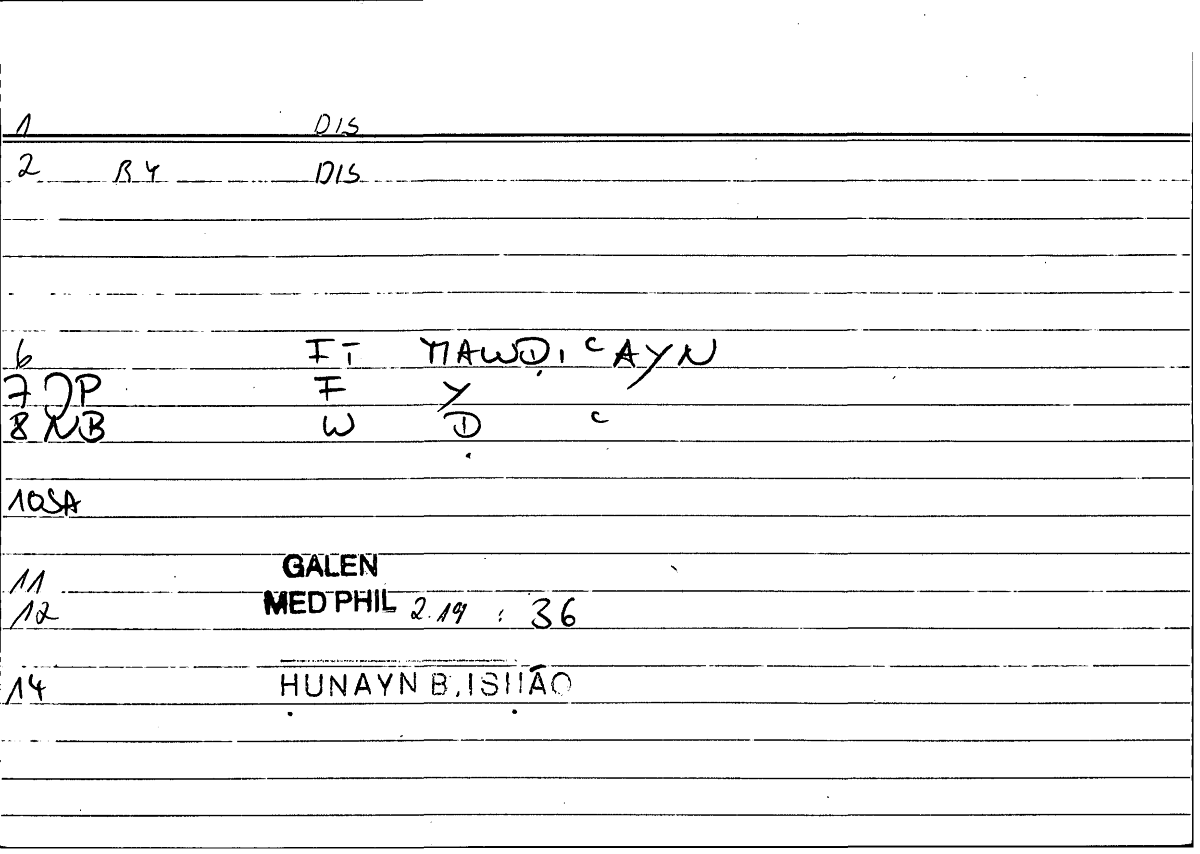 1 DIS
2 BY DIS
6 FĪ MAWḌIʿ ʿAYN
7 JP F Y
8 NB W Ḍ ʿ
10 SA
11 GALEN
12 MED PHIL 2.19 : 36
14 ḤUNAYN B. ISḤĀQ